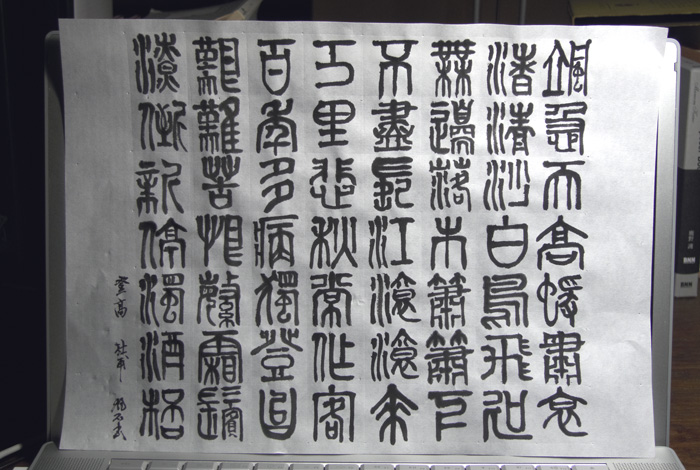 風急天高蝯嘯哀
渚清沙白鳥飛迴
無邊落木蕭蕭下
不盡長江滾滾來
万里悲秋常作客
百年多病獨登臺
艱難苦恨繁霜鬢
潦倒新停濁酒桮
登高 杜甫